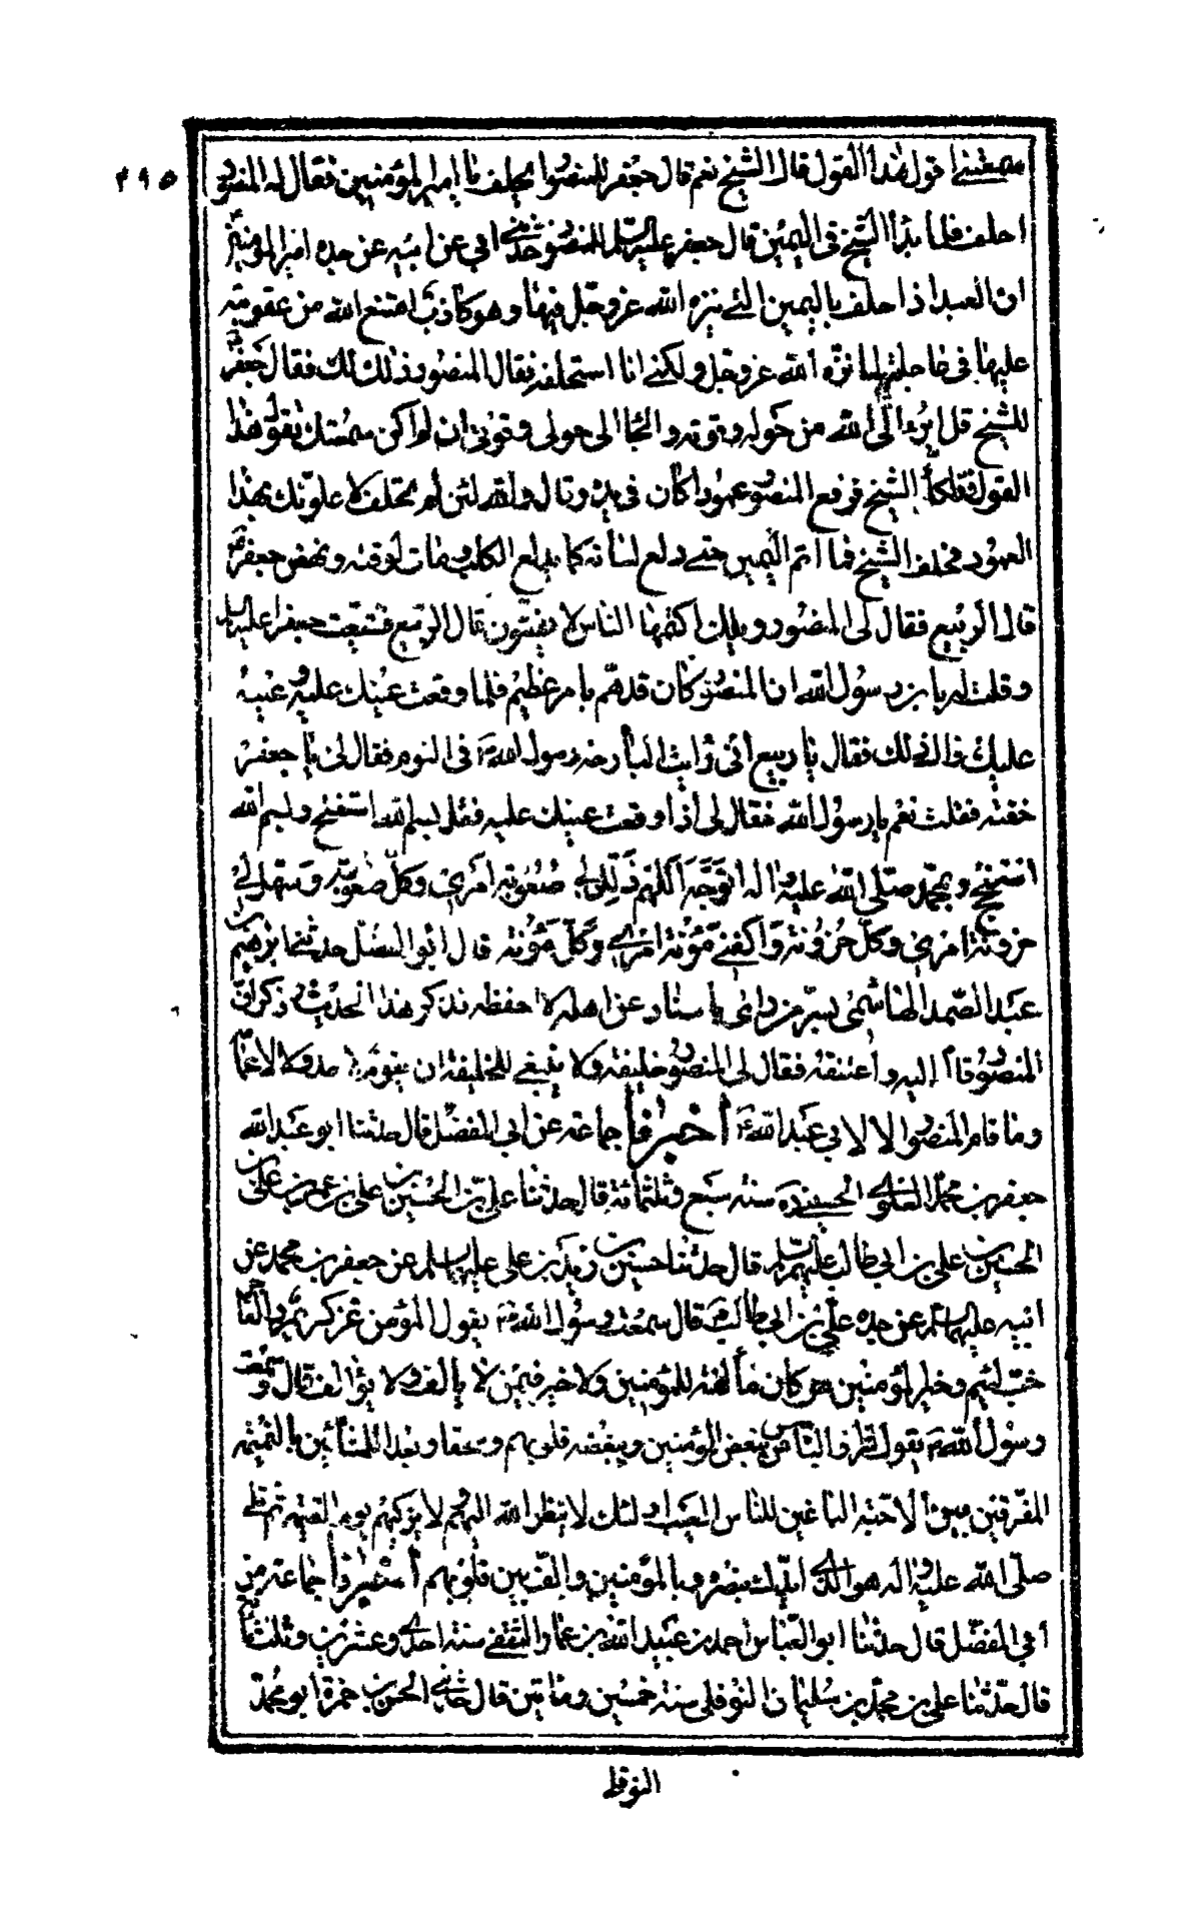 ٢٩٥
سمعتني اقول هذا القول قال الشيخ نعم قال جعفر للمنصور ايحلف يا امير المؤمنين فقال له المنصور
احلف فلما بدأ الشيخ في اليمين قال جعفر عليه السلم للمنصور حدثني ابي عن ابيه عن جده امير المؤمنين
ان العبد اذا حلف باليمين التي ينزه الله عز وجل فيها وهو كاذب امتنع الله من عقوبته
عليها في ما حلف لما نزه الله عز وجل ولكني انا استحلفه فقال المنصور ذلك لك فقال جعفر
للشيخ قل ابرء الى الله من حوله وقوته والجأ الى حولي وقوتي ان لم اكن سمعتك تقول هذا
القول فتلكأ الشيخ فرفع المنصور عمودا كان في يده وقال والله لئن لم تحلف لاعلونك بهذا
العمود فحلف الشيخ فما اتم اليمين حتى دلع لسانه كما يدلع الكلب ومات لوقته ونهض جعفر
قال الربيع فقال لي المنصور ويلك اكتمها الناس لا يفتتون قال الربيع فشيعت جعفرا عليه السلم
وقلت له يا بن رسول الله ان المنصور كان قد هم بامر عظيم فلما وقعت عينك عليه وعينه
عليك زال ذلك فقال يا ربيع اني رايت البارحة رسول الله ص في النوم فقال لي يا جعفر
خفته فقلت نعم يا رسول الله فقال لي اذا وقعت عينك عليه فقل بسم الله استفتح وبسم الله
استنجح وبمحمد صلى الله عليه واله اتوجه اللهم ذلل لي صعوبة امري وكل صعوبة وسهل لي
حزونة امري وكل حزونة واكفني مؤنة امري وكل مؤنة قال ابو المفضل حدثنا ابراهيم بن
عبد الصمد الهاشمي بسر من راى باسناد عن اهله لا احفظه فذكر هذا الحديث وذكر ان
المنصور قام اليه واعتنقه فقال لي المنصور خليفة ولا ينبغي للخليفة ان يقوم الى احد ولا الاعمامه
وما قام المنصور الا لابي عبد الله ع أخبرنا جماعة عن ابي المفضل قال حدثنا ابو عبد الله
جعفر بن محمد العلوي الحسيني ره سنة سبع وثلثمائة قال حدثنا علي بن الحسين بن علي بن عمر بن علي بن
الحسين بن علي بن ابي طالب عليهم السلم قال حدثنا حسين بن زيد بن علي عليهما السلم عن جعفر بن محمد عن
ابيه عليهما السلم عن جده علي بن ابي طالب ع قال سمعت رسول الله ص يقول المؤمن غر كريم والفاجر
خب لئيم وخير المؤمنين من كان مألفة للمؤمنين ولا خير فيمن لا يالف ولا يؤالف قال وسمعت
رسول الله ص يقول شرار الناس من يبغض المؤمنين وتبغضه قلوبهم وسحقا وبعدا للمشائين بالنميمة
المفرقين بين الاحبة الباغين للناس العيب اولئك لا ينظر الله اليهم ولا يزكيهم يوم القيمة ثم تلى
صلى الله عليه واله هو الذي ايدك بنصره وبالمؤمنين والف بين قلوبهم أخبرنا جماعة عن
ابي المفضل قال حدثنا ابو العباس احمد بن عبيد الله بن عمار الثقفي سنة احدى وعشرين وثلثمائة
قال حدثنا علي بن محمد بن سليمان النوفلي سنة خمسين ومائتين قال حدثني الحسن بن حمزة ابو محمد
النوفلي